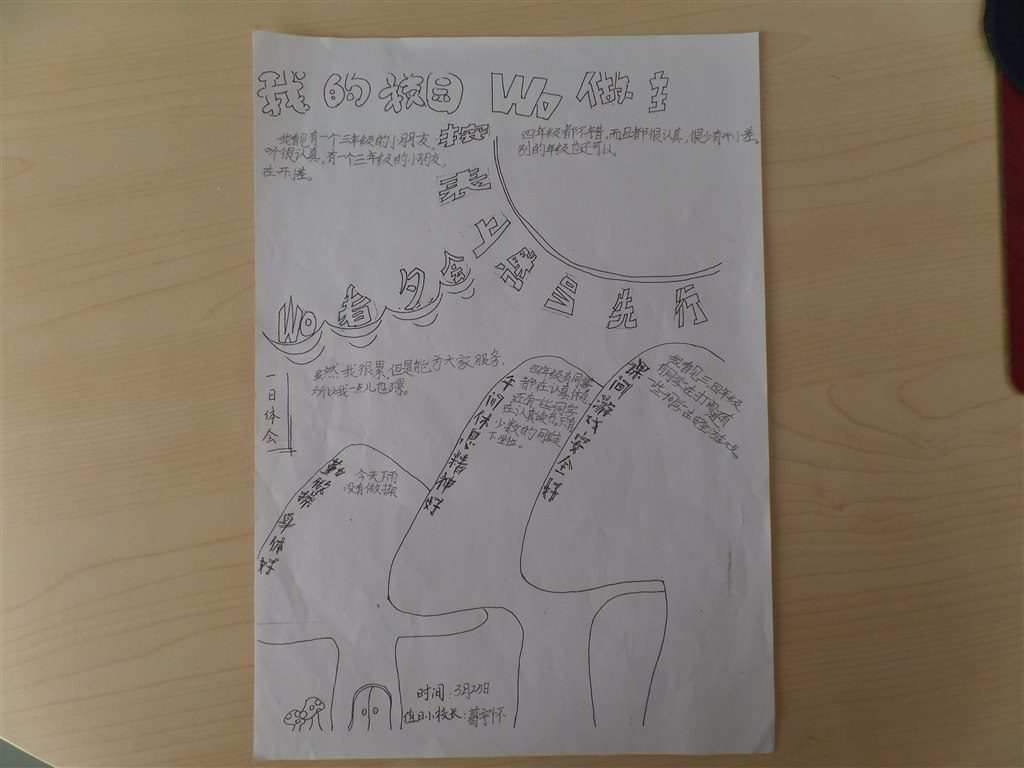 我的校园 Wo 做主
我看见有一个三年级的小朋友,
叶很认真,有一个三年级的小朋友
在开差。
四年级都不错,而且都很认真,很少有开小差。
别的年级也还可以。
卫
先行
Wo 看夕会
一日体会
虽然我很累,但是能为大家服务,
所以我一点儿也不累。
勤做操 身体好
今天下雨
没有做操
午间休息精神好
四年级有同学
都在认真休息
还有一些同学
在认真读书,只有
少数的同学在
下坐位。
课间游戏安全好
我看见三四年级
时间:3月25日
值日小校长:葛宇怀